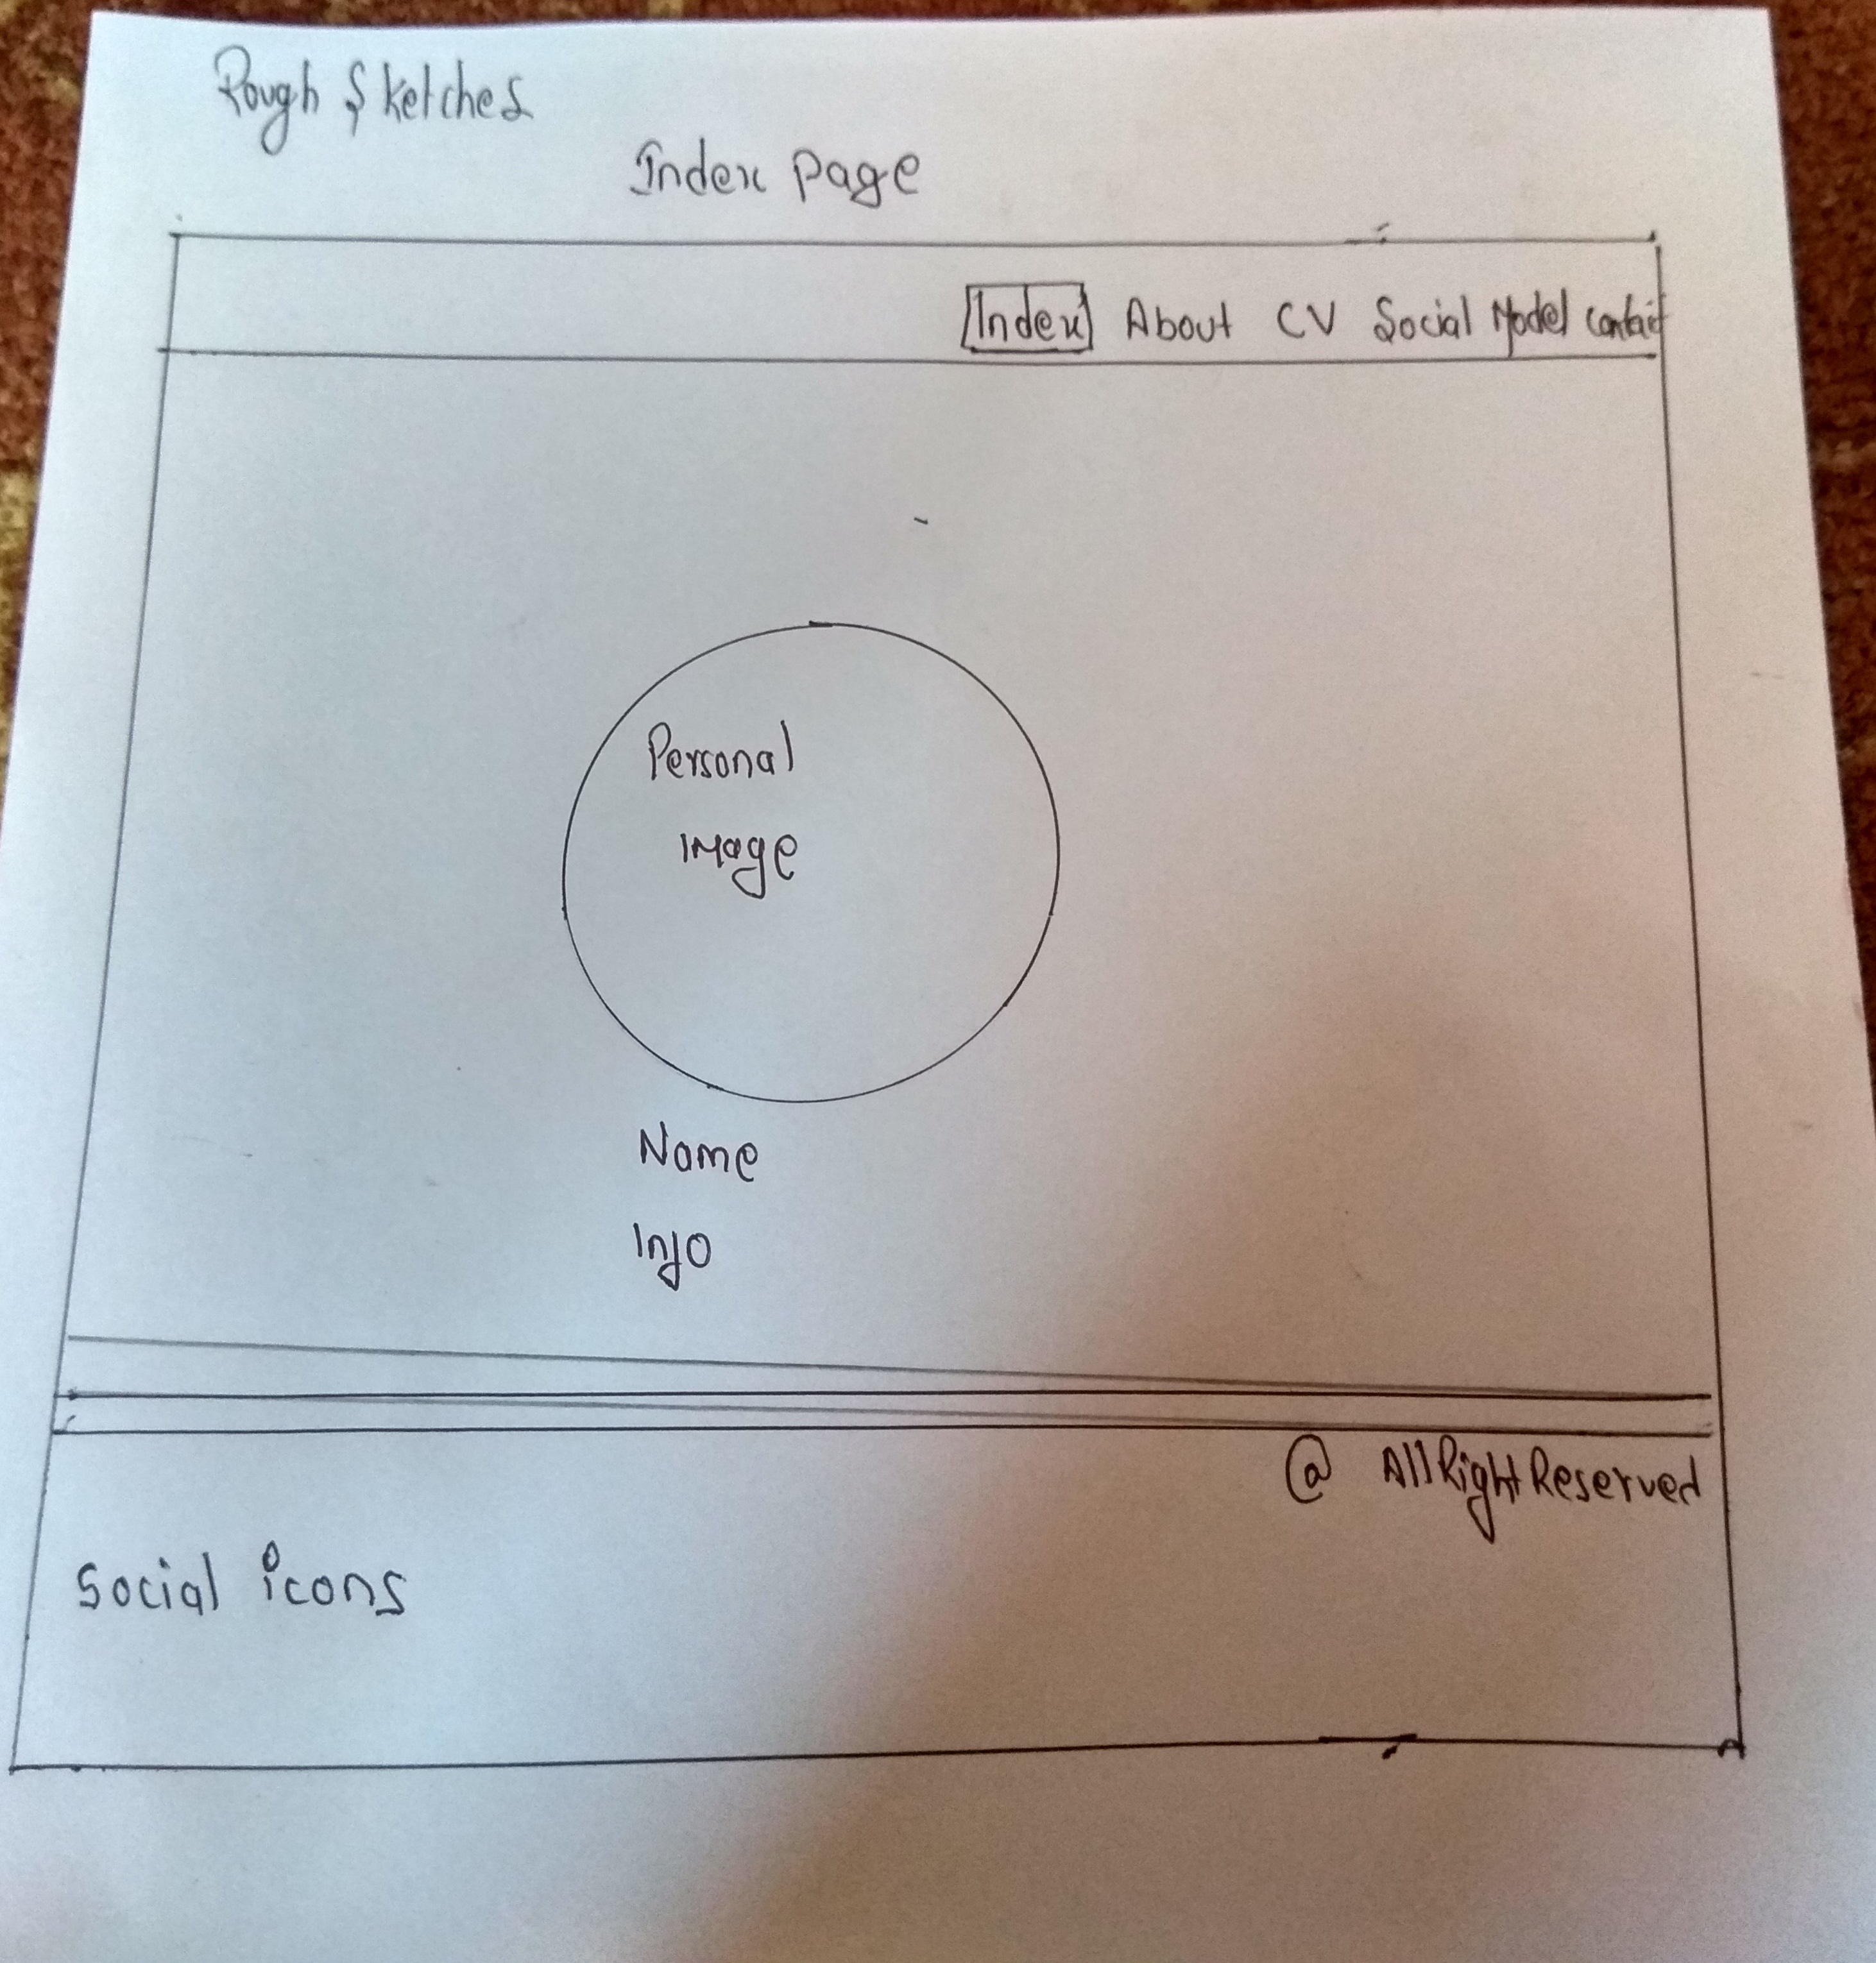 Rough Sketches
Index page
Index About CV Social Model contact
Personal
Image
Name
Info
@ AllRightReserved
Social icons